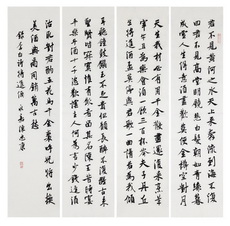 君不見黃河之水天上來奔流到海不復
回君不見高堂明鏡悲白髮朝如青絲暮
成雪人生得意須盡歡莫使金樽空對月
天生我材必有用千金散盡還復來烹羊
宰牛且為樂會須一飲三百杯岑夫子丹丘
生將進酒杯莫停與君歌一曲請君為我傾
耳聽鐘鼓饌玉不足貴但願長醉不願醒古來
聖賢皆寂寞惟有飲者留其名陳王昔時宴
平樂斗酒十千恣歡謔主人何為言少錢徑須
沽取對君酌五花馬千金裘呼兒將出換
美酒與爾同銷萬古愁
李白詩將進酒